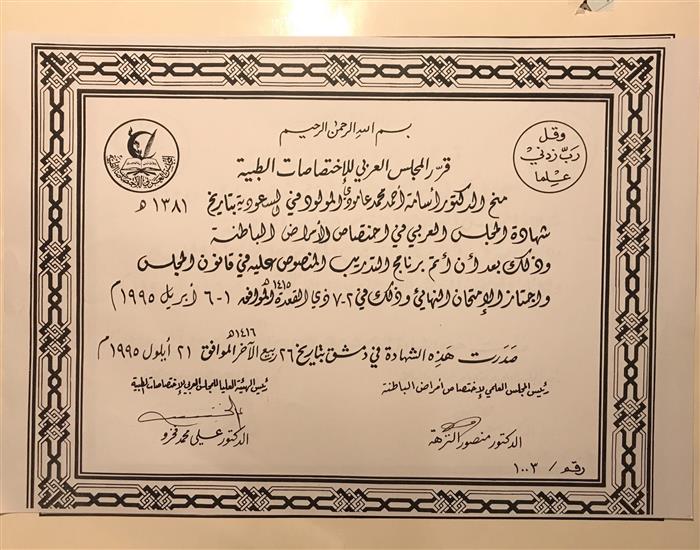 بسم الله الرحمن الرحيم
وقل
رب زدني
علما
قرر المجلس العربي للإختصاصات الطبية
منح الدكتور أسامة أحمد محمد عامودي المولود في السعودية بتاريخ ١٣٨١ هـ
شهادة المجلس العربي في اختصاص الأمراض الباطنة
وذلك بعد أن أتم برنامج التدريب المنصوص عليه في قانون المجلس
واجتاز الإمتحان النهائي وذلك في ٢-٧ ذي القعدة ١٤١٥هـ الموافق ١-٦ أبريل ١٩٩٥م
صدرت هذه الشهادة في دمشق بتاريخ ٢٦ ربيع الآخر ١٤١٦هـ الموافق ٢١ أيلول ١٩٩٥م
رئيس المجلس العلمي لإختصاص أمراض الباطنة
رئيس الهيئة العليا للمجلس العربي للإختصاصات الطبية
الدكتور منصور النزهة
الدكتور علي محمد فخرو
رقم / ١٠٠٣